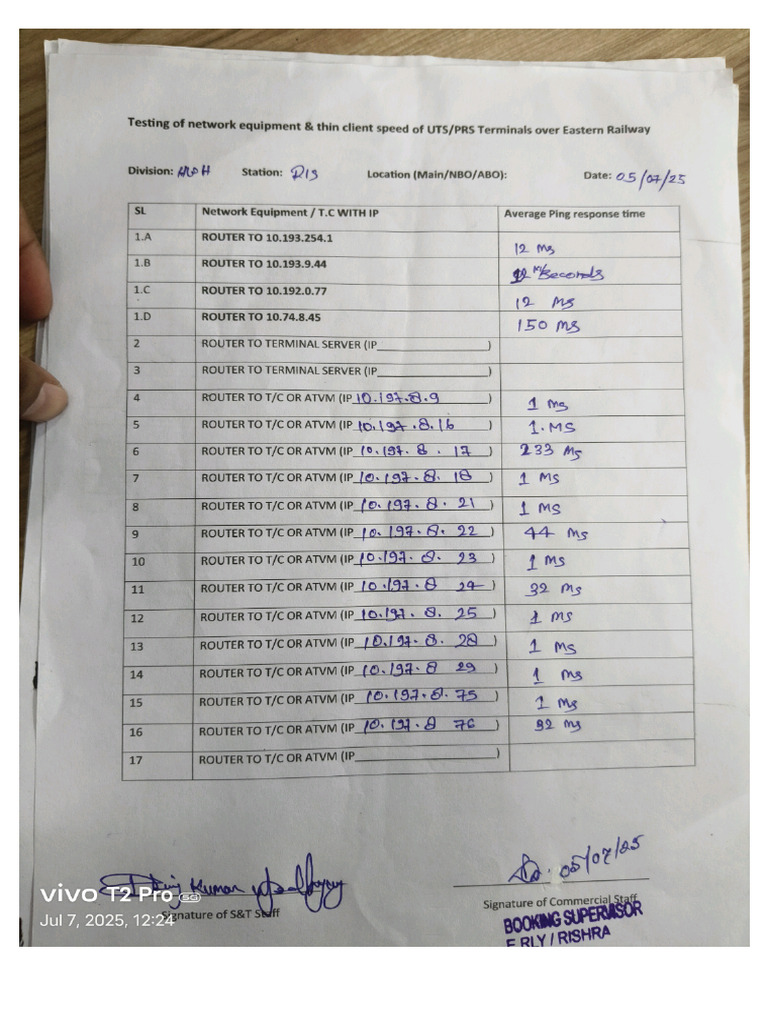 Testing of network equipment & thin client speed of UTS/PRS Terminals over Eastern Railway
Division: HWH Station: RIS Location (Main/NBO/ABO): Date: 05/07/25
SL Network Equipment / T.C WITH IP Average Ping response time
1.A ROUTER TO 10.193.254.1 12 Ms
1.B ROUTER TO 10.193.9.44 M/Seconds
1.C ROUTER TO 10.192.0.77 12 Ms
1.D ROUTER TO 10.74.8.45 150 Ms
2 ROUTER TO TERMINAL SERVER (IP____________________)
3 ROUTER TO TERMINAL SERVER (IP____________________)
4 ROUTER TO T/C OR ATVM (IP 10.197.8.9 ) 1 Ms
5 ROUTER TO T/C OR ATVM (IP 10.197.8.16 ) 1.MS
6 ROUTER TO T/C OR ATVM (IP 10.197.8.17 ) 233 Ms
7 ROUTER TO T/C OR ATVM (IP 10.197.8.18 ) 1 Ms
8 ROUTER TO T/C OR ATVM (IP 10.197.8.21 ) 1 Ms
9 ROUTER TO T/C OR ATVM (IP 10.197.8.22 ) 44 Ms
10 ROUTER TO T/C OR ATVM (IP 10.197.8.23 ) 1 Ms
11 ROUTER TO T/C OR ATVM (IP 10.197.8 24 ) 32 Ms
12 ROUTER TO T/C OR ATVM (IP 10.197.8.25 ) 1 Ms
13 ROUTER TO T/C OR ATVM (IP 10.197.8.28 ) 1 Ms
14 ROUTER TO T/C OR ATVM (IP 10.197.8 29 ) 1 Ms
15 ROUTER TO T/C OR ATVM (IP 10.197.8.75 ) 1 Ms
16 ROUTER TO T/C OR ATVM (IP 10.197.8 76 ) 32 Ms
17 ROUTER TO T/C OR ATVM (IP____________________)
05/07/25
Kumar
vivo T2 Pro 5G
Jul 7, 2025, 12:24
Signature of S&T Staff
Signature of Commercial Staff
BOOKING SUPERVISOR
E.RLY / RISHRA